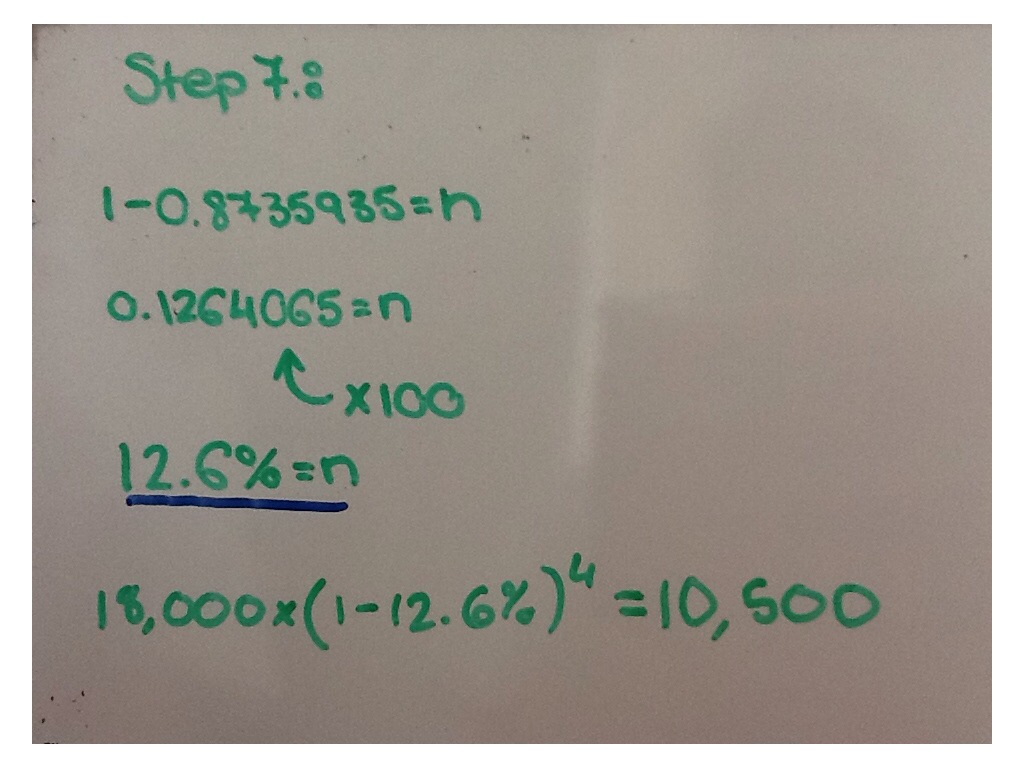 Step 7.:
1-0.8735935=n
0.1264065=n
x100
12.6%=n
18,000x(1-12.6%)⁴=10,500